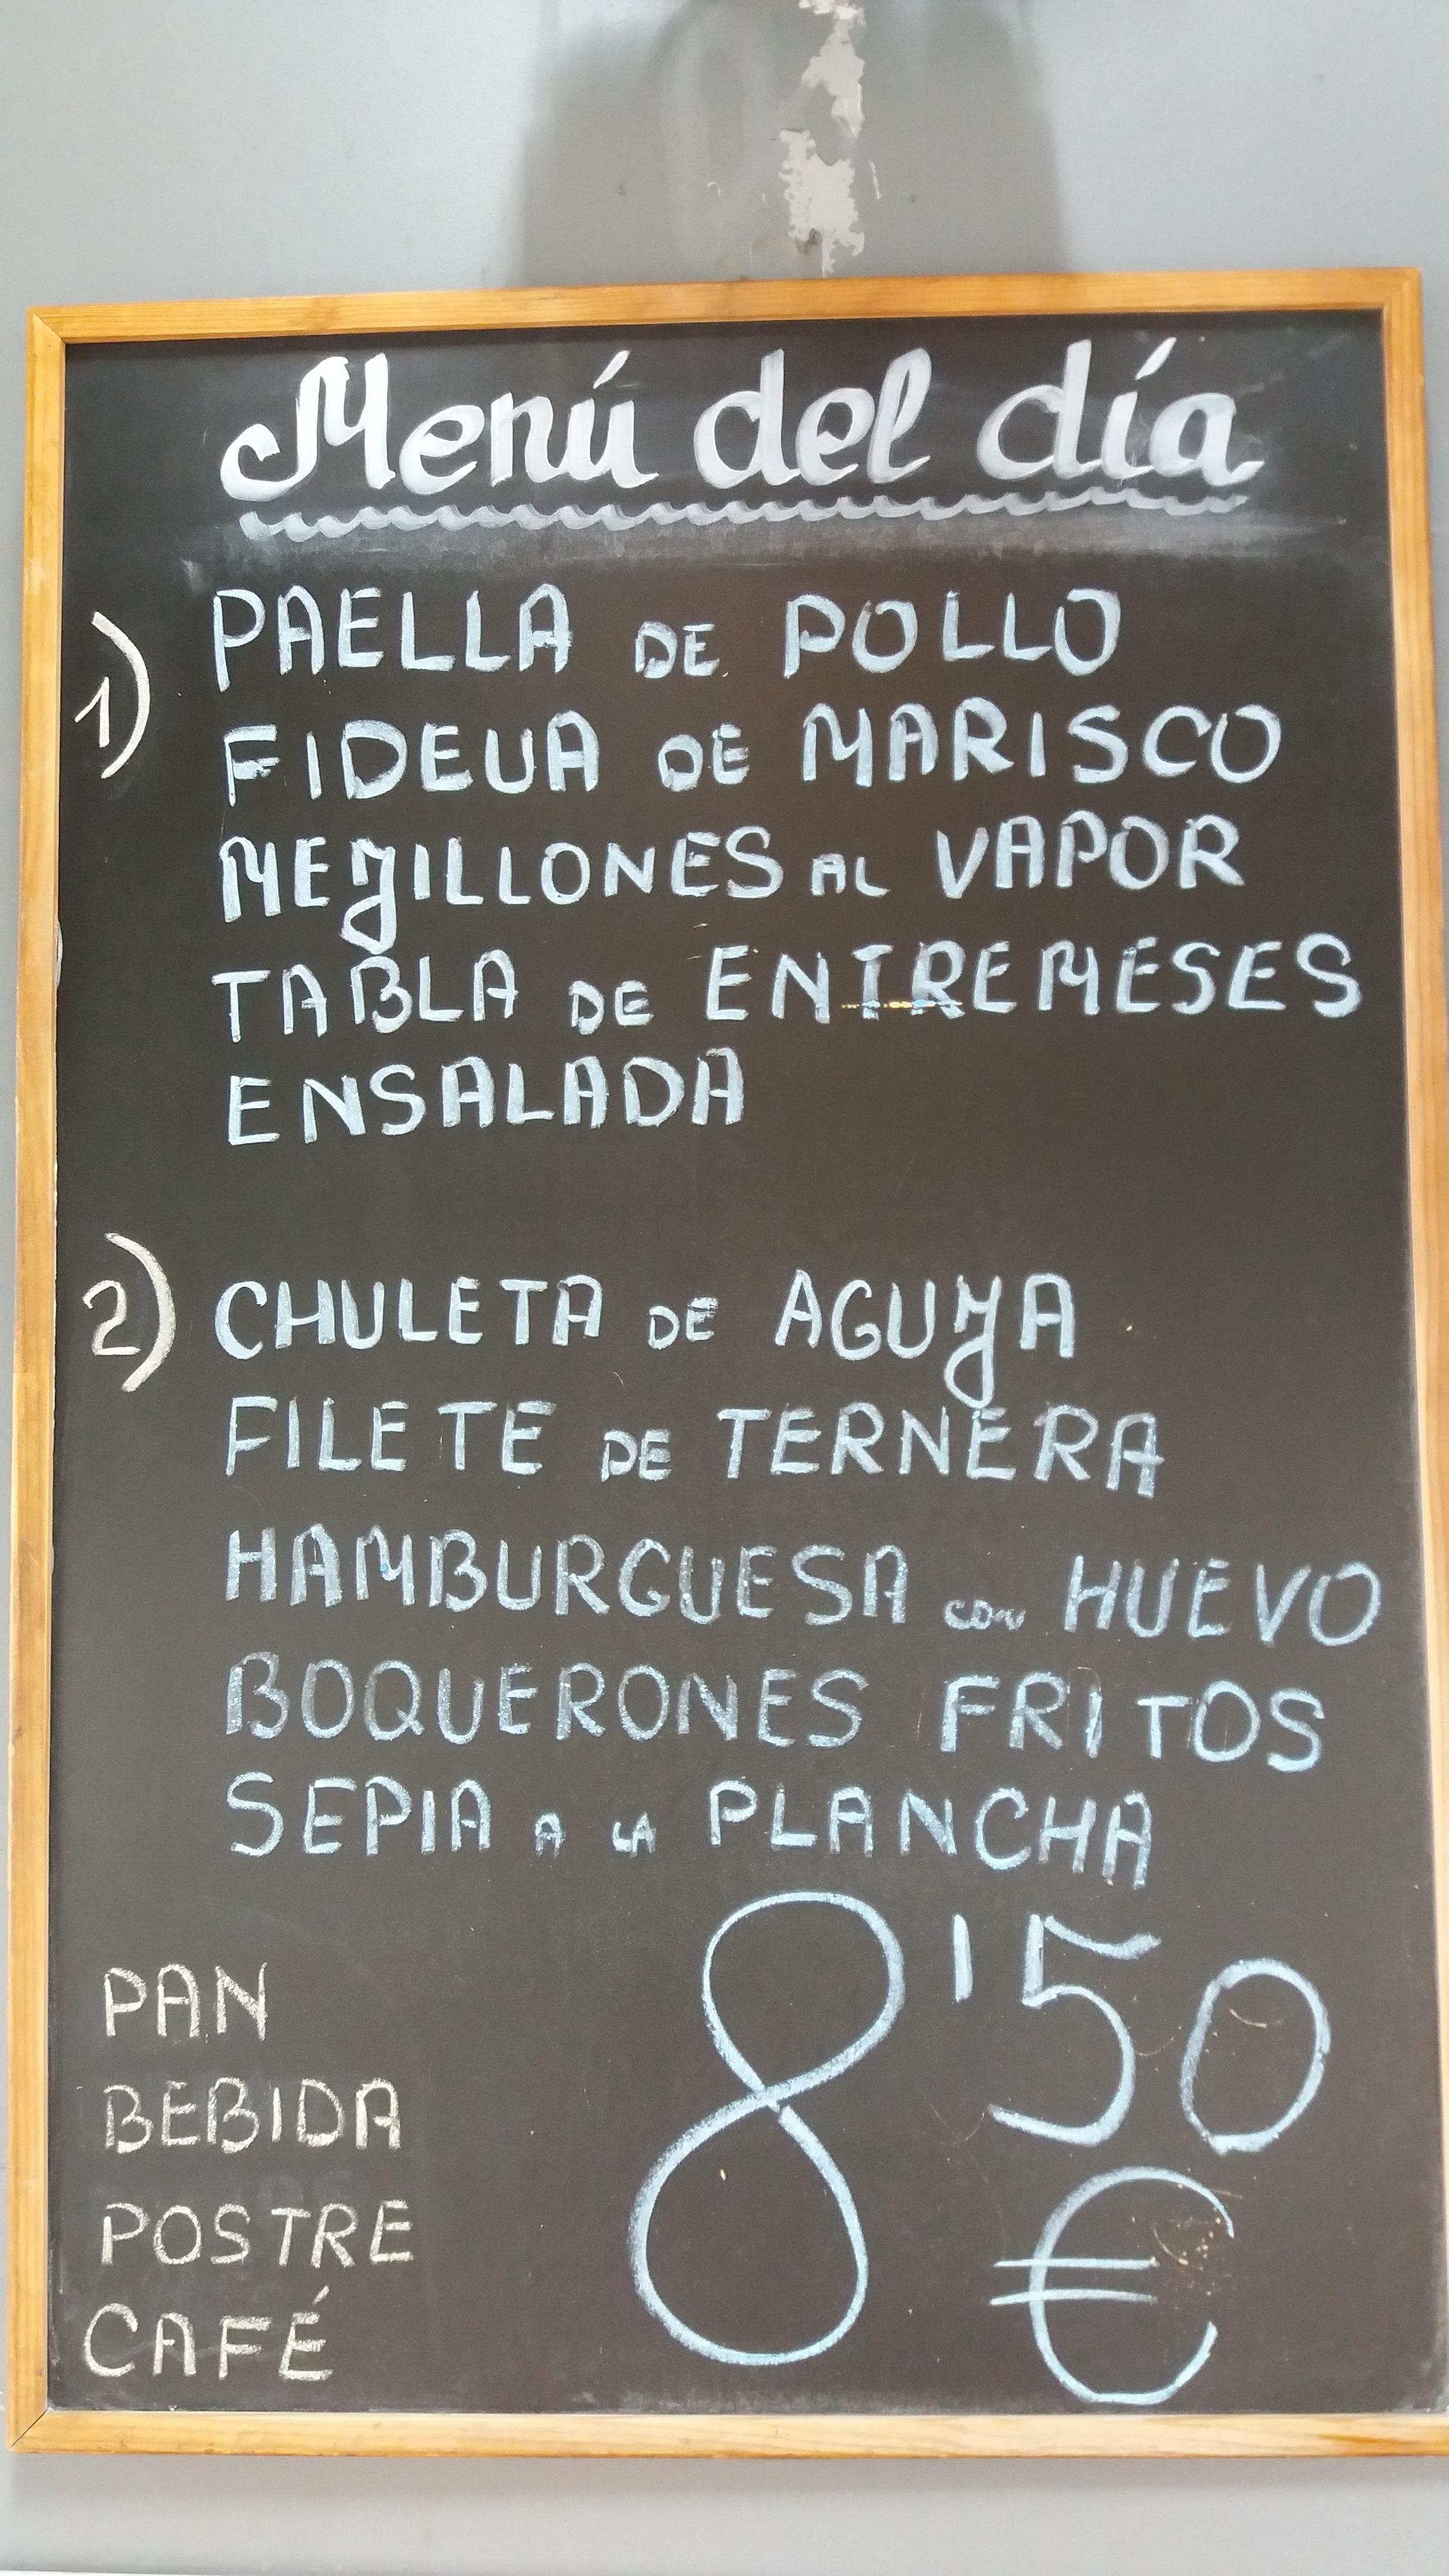 Menú del día
1) PAELLA DE POLLO
FIDEUA DE MARISCO
MEJILLONES AL VAPOR
TABLA DE ENTREMESES
ENSALADA
2) CHULETA DE AGUJA
FILETE DE TERNERA
HAMBURGUESA con HUEVO
BOQUERONES FRITOS
SEPIA A LA PLANCHA
PAN
BEBIDA
POSTRE
CAFÉ
8'50
€